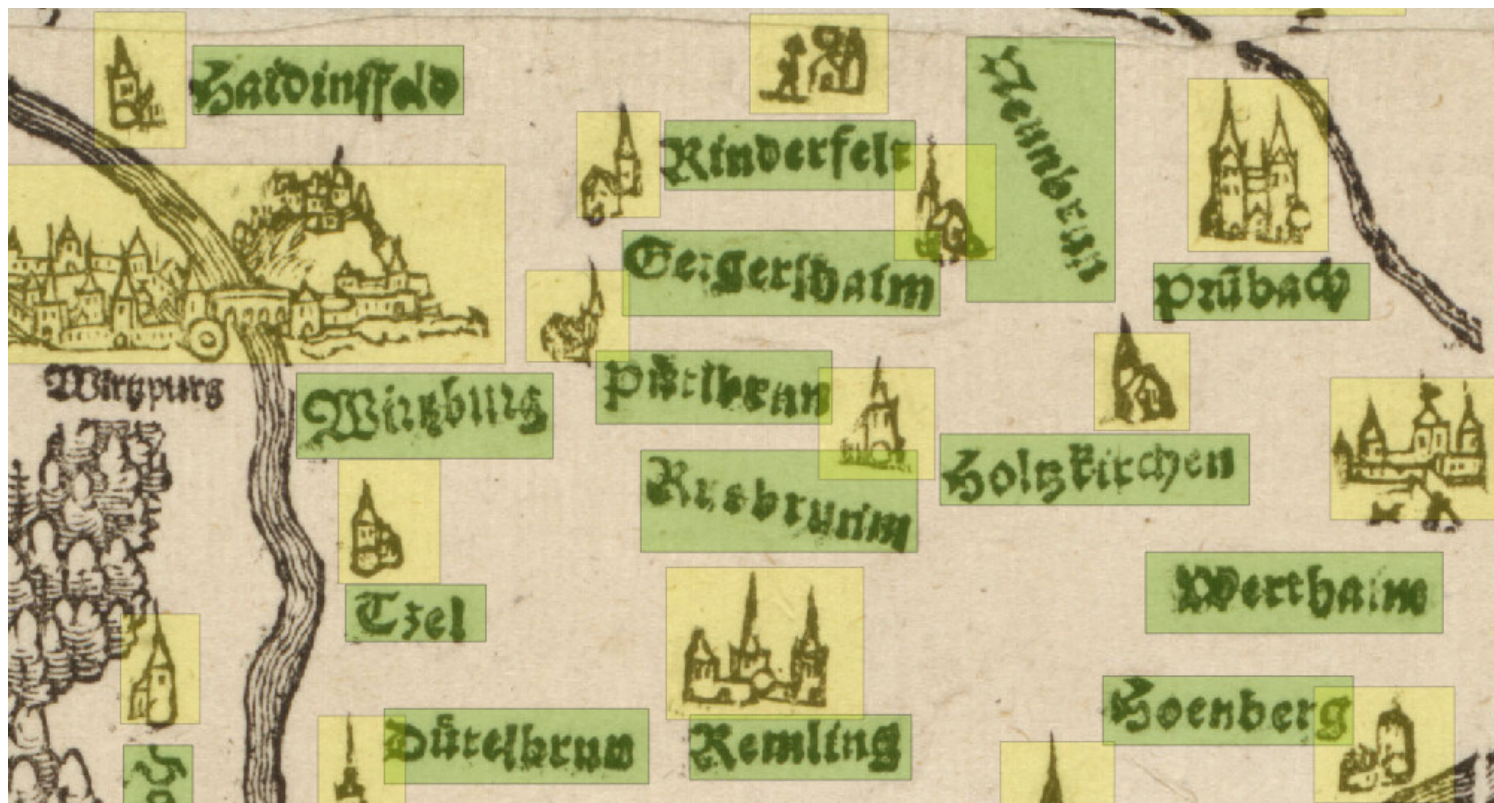 Haidinsfeld
Rinderfelt
Neunbrun
Geigershaim
Prübach
Wirtzpurg
Wirtzburg
Holtzkirchen
Rusbrunm
Tzel
Werthaim
Hoenberg
Dütelbrun
Remling